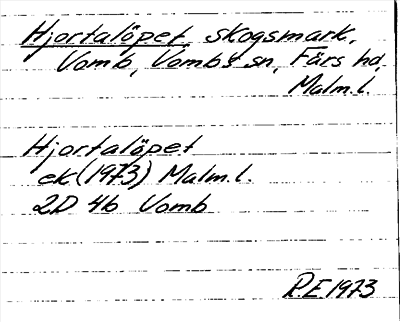 Hjortalöpet, skogsmark,
Vomb, Vombs sn, Färs hd,
Malm.l.
Hjortalöpet
ek (1973) Malm.l.
2D 4b Vomb
P.E. 1973